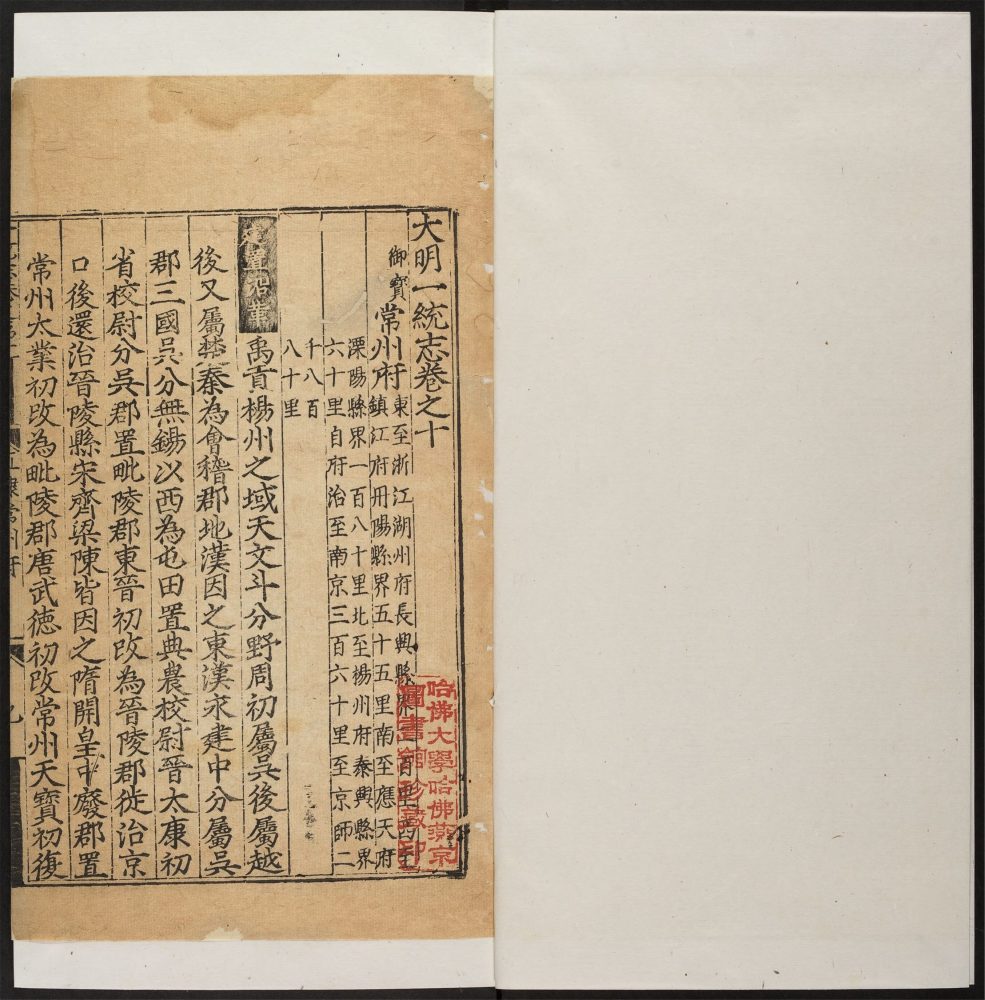 大明一統志卷之十
御寳 常州府
東至浙江湖州府長興縣界一百里西至
鎮江府丹陽縣界五十五里南至應天府
溧陽縣界一百八十里北至楊州府泰興縣界
六十里自府治至南京三百六十里至京師二
千八百
八十里
建置沿革 禹貢楊州之域天文斗分野周初屬吳後屬越
後又屬楚秦為會稽郡地漢因之東漢永建中分屬吳
郡三國吳分無錫以西為屯田置典農校尉晉太康初
省校尉分吳郡置毗陵郡東晉初改為晉陵郡徙治京
口後還治晉陵縣宋齊梁陳皆因之隋開皇中廢郡置
常州大業初改為毗陵郡唐武德初改常州天寳初復
哈佛大學哈佛燕京
圖書館珍藏印